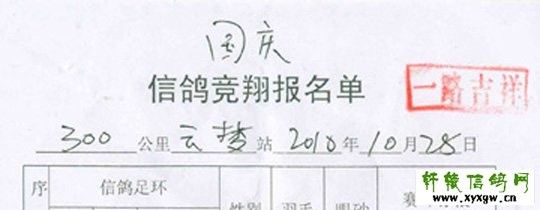 国庆
信鸽竞翔报名单
一路吉祥
300公里云梦站2010年10月28日
序
信鸽足环
性别
羽毛
眼砂
轩辕信鸽网
www.xyxgw.cn